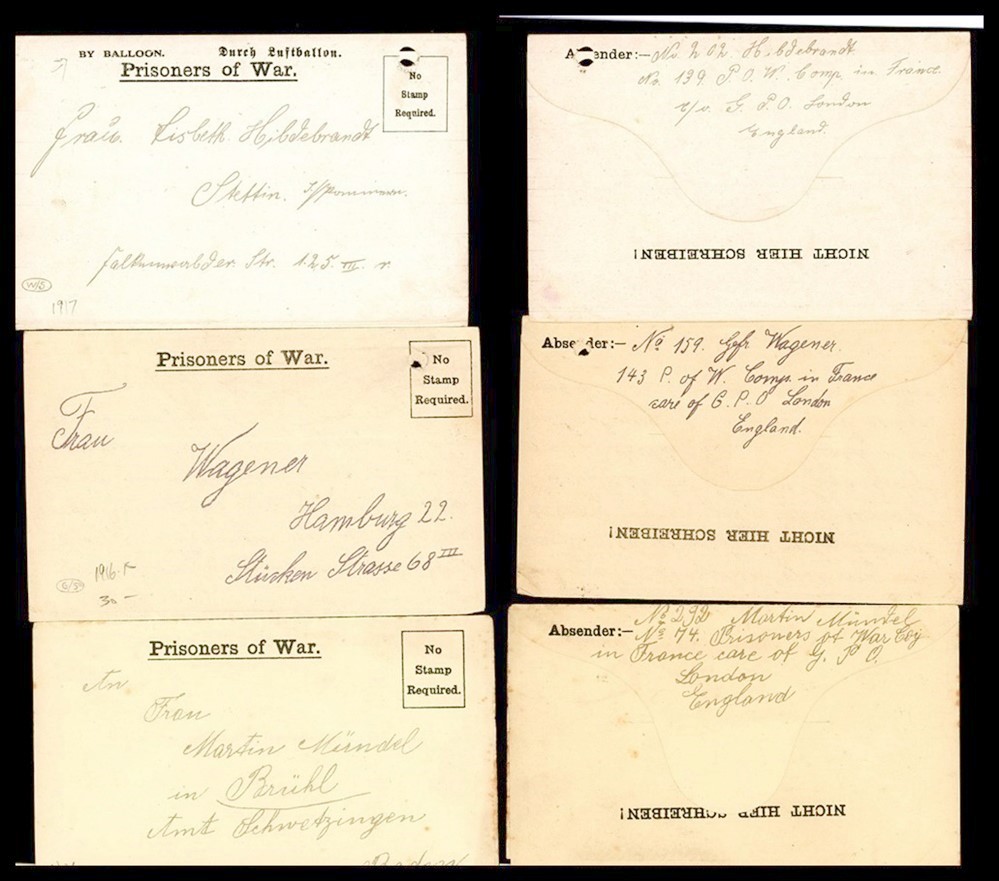 BY BALLOON. Durch Luftballon.
Prisoners of War.
No
Stamp
Required.
Frau. Lisbeth. Hildebrandt
Stettin.
Str. 125 III r.
W/S
1917
Absender:— No 202 Hildebrandt
No. 139 P.O.W. Comp. in France
c/o. G. P.O. London
England.
NICHT HIER SCHREIBEN!
Prisoners of War.
No
Stamp
Required.
Frau
Wagener
Hamburg 22.
Stücken Strasse 68 III
1916
30 -
Absender:— No 159. Gefr. Wagener.
143 P. of W. Comp. in France
care of G. P. O London
England.
NICHT HIER SCHREIBEN!
Prisoners of War.
No
Stamp
Required.
An
Frau
Martin Mündel
in Brühl
Amt Schwetzingen
Baden
No 292 Martin Mündel
Absender:— No 74. Prisoners of War Coy
in France care of G. P O.
London
England
NICHT HIER SCHREIBEN!